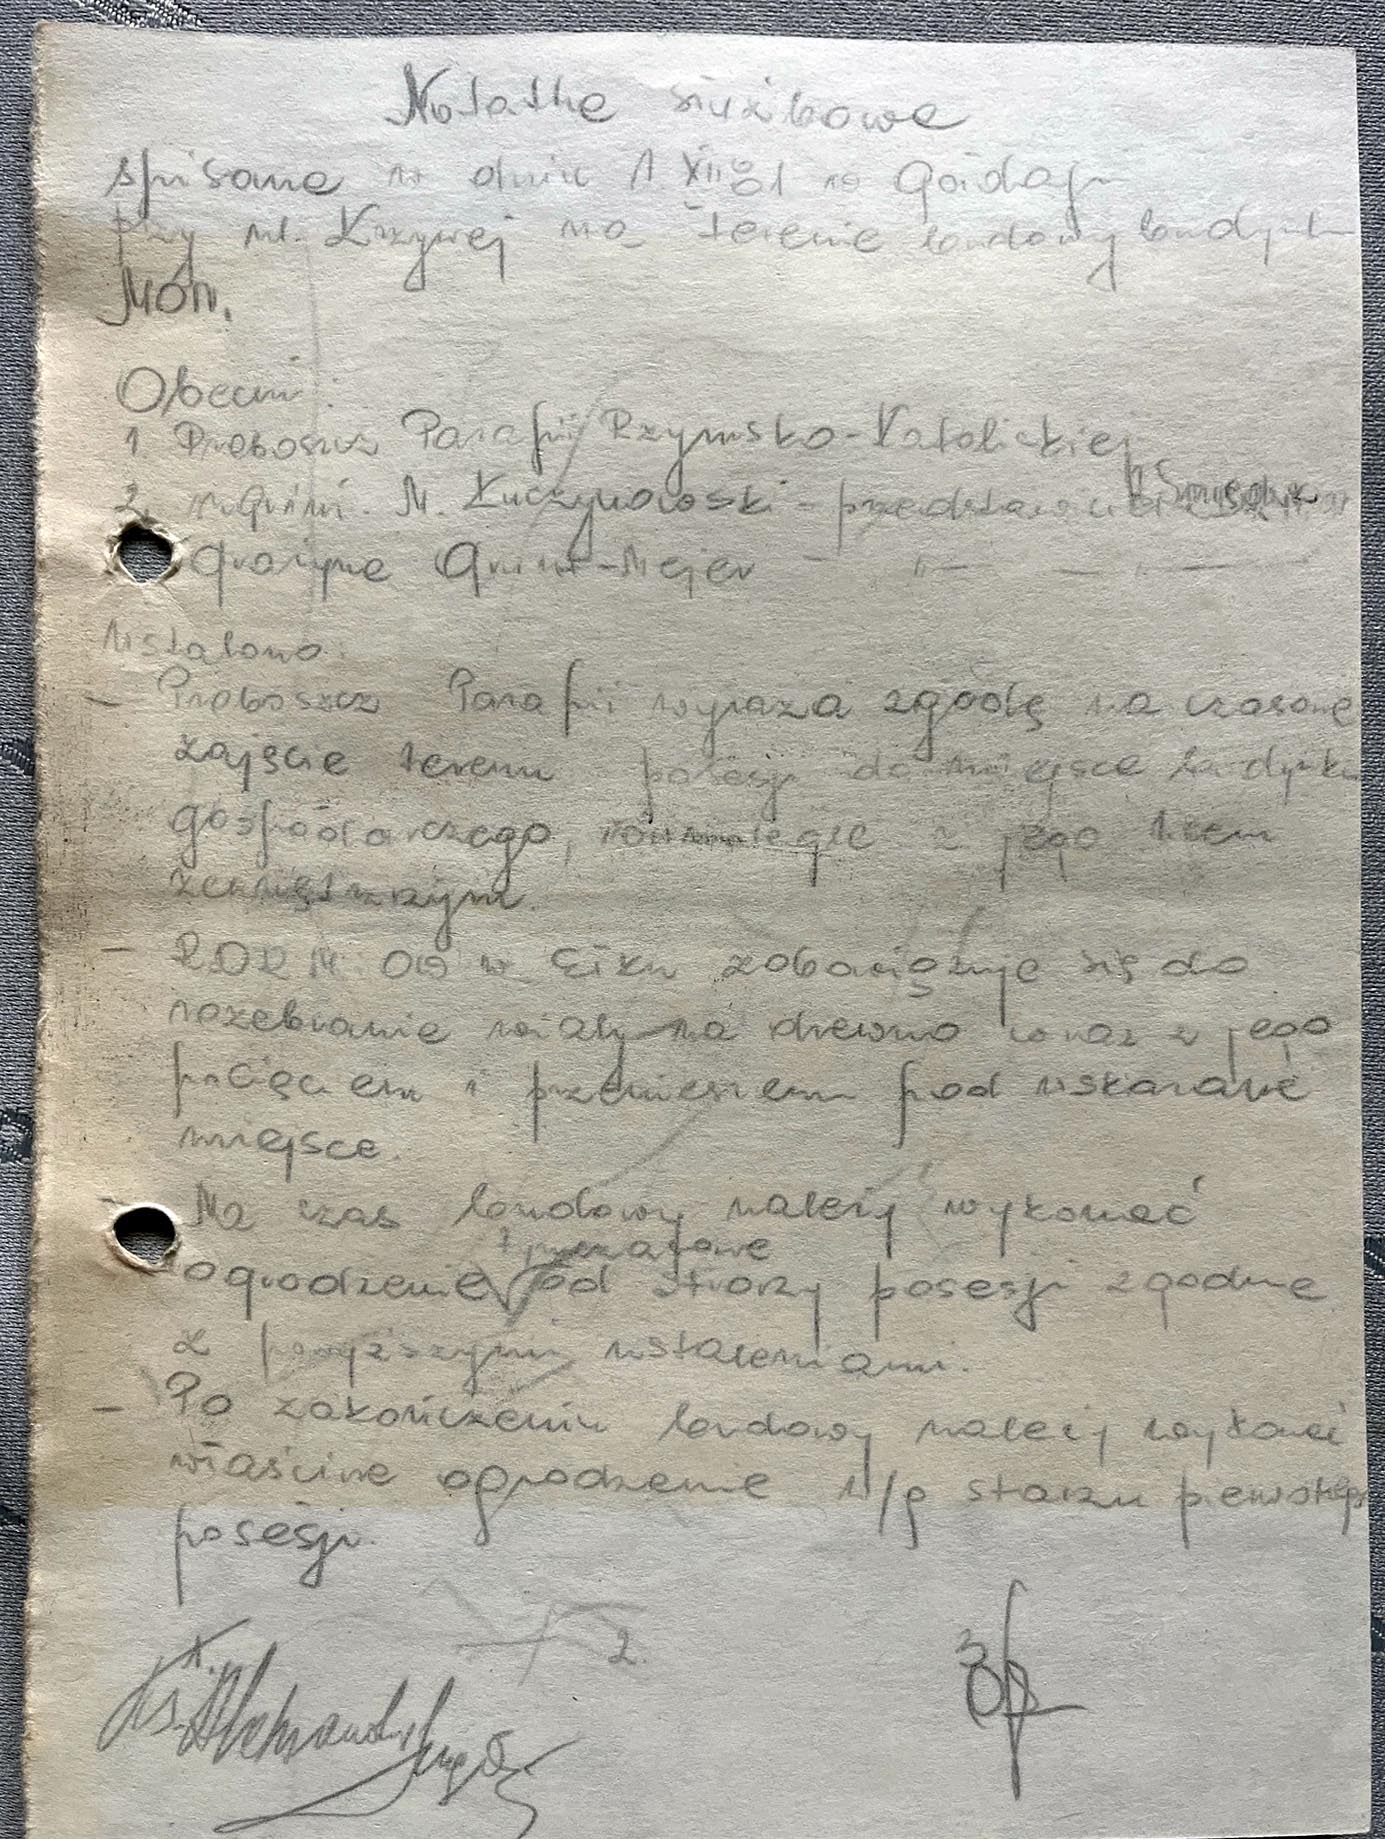 Notatka służbowa
spisana w dniu 1 XII 81 w Gołdapi
przy ul. Krzywej na terenie budowy budynku
Obecni:
1. Proboszcz Parafii Rzymsko-Katolickiej
2. M. Łuczynowski - przedstawiciel
Grażyna - Mejer - " - - " -
Ustalono:
- Proboszcz Parafii wyraża zgodę na czasowe
zajęcie terenu posesji do miejsca budynku
gospodarczego, równolegle z jego licem
zewnętrznym.
- RDRM O/G w Ełku zobowiązuje się do
rozebrania wiaty na drewno wraz z jego
pocięciem i przeniesieniem pod wskazane
miejsce.
- Na czas budowy należy wykonać
tymczasowe
ogrodzenie od strony posesji zgodnie
z powyższymi ustaleniami.
- Po zakończeniu budowy należy wykonać
właściwe ogrodzenie w/g stanu
posesji.
1.
2.
3
Ks. Aleksander